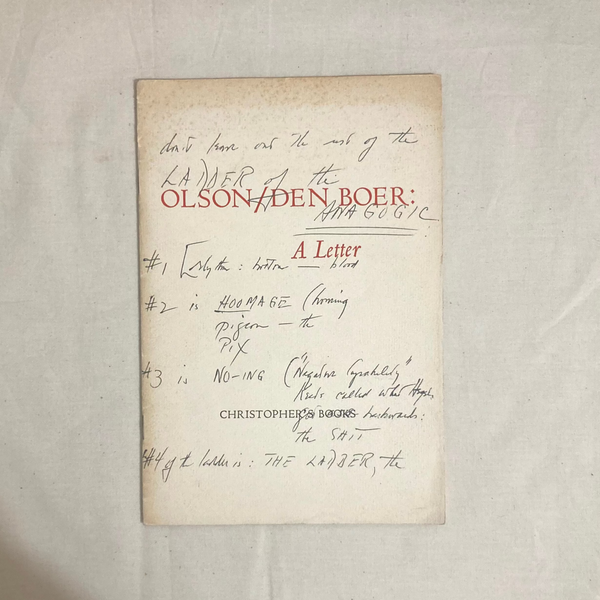 don't leave out the rest of the
LADDER of the
OLSON/DEN BOER:
ANAGOGIC
A Letter
#1 [rhythm: — blood
#2 is HOOMAGE (homing
pigeon — the
PIX
#3 is NO-ING ("Negative Capability"
Keats called what
CHRISTOPHER'S BOOKS
backwards:
the SHIT
#4 of the ladder is: THE LADDER, the